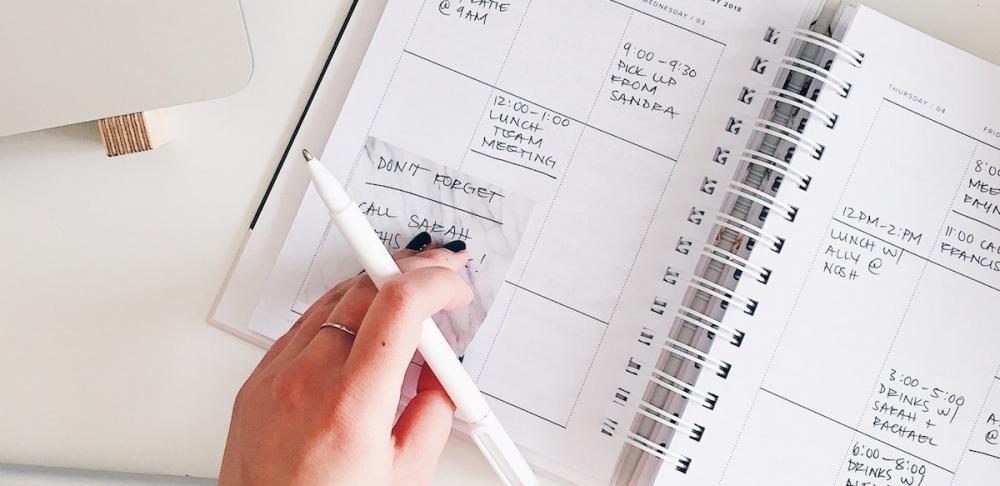 @ 9AM
WEDNESDAY / 03
2018
9:00-9:30
PICK UP
FROM
SANDRA
12:00-1:00
LUNCH
TEAM
MEETING
DON'T FORGET
CALL SARAH
THIS
THURSDAY / 04
12PM-2:PM
LUNCH W/
ALLY @
NOSH
3:00-5:00
DRINKS W/
SARAH +
RACHAEL
6:00-8:00
DRINKS W/
FRID
8:00
MEE
11:00 CA
FRANCIS